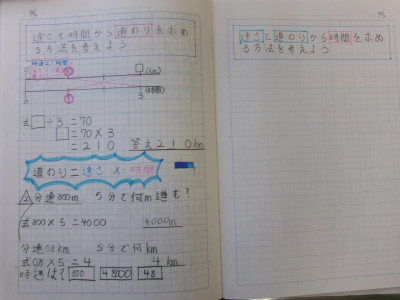 速さと時間から道のりを求め
る方法を考えよう
0 70 □ (km)
0 1 3 (時間)
式□÷3=70
□=70×3
=210 答え210km
道のり=速さ×時間
△2 分速800m 5分で何m進む?
式800×5=4000 4000m
分速0.8km 5分で何km
式0.8×5=4 4km
時速は? 800 4800 48
速さと道のりから時間を求め
る方法を考えよう